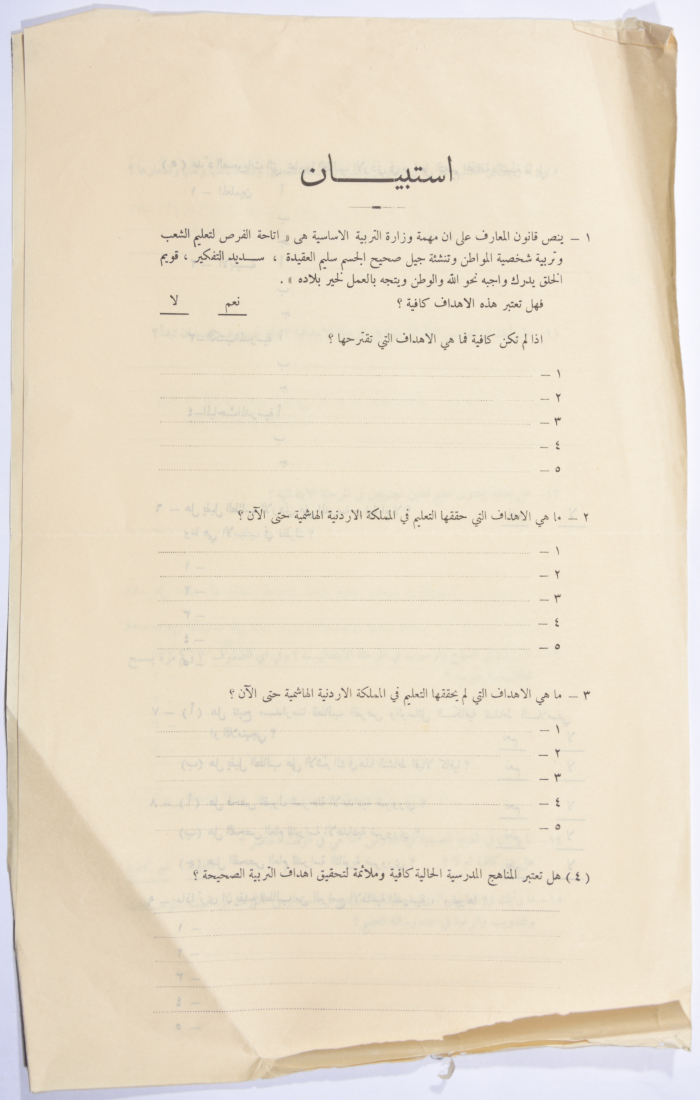 استبيـــــان
١ – ينص قانون المعارف على ان مهمة وزارة التربية الاساسية هى « اتاحة الفرص لتعليم الشعب
وتربية شخصية المواطن وتنشئة جيل صحيح الجسم سليم العقيدة ، ســديد التفكير ، قويم
الخلق يدرك واجبه نحو الله والوطن ويتجه بالعمل لخير بلاده » .
فهل تعتبر هذه الاهداف كافية ؟ نعم لا
اذا لم تكن كافية فما هي الاهداف التي تقترحها ؟
١ –
٢ –
٣ –
٤ –
٥ –
٢ – ما هي الاهداف التي حققها التعليم في المملكة الاردنية الهاشمية حتى الآن ؟
١ –
٢ –
٣ –
٤ –
٥ –
٣ – ما هي الاهداف التي لم يحققها التعليم في المملكة الاردنية الهاشمية حتى الآن ؟
١ –
٢ –
٣ –
٤ –
٥ –
(٤) هل تعتبر المناهج المدرسية الحالية كافية وملائمة لتحقيق اهداف التربية الصحيحة ؟